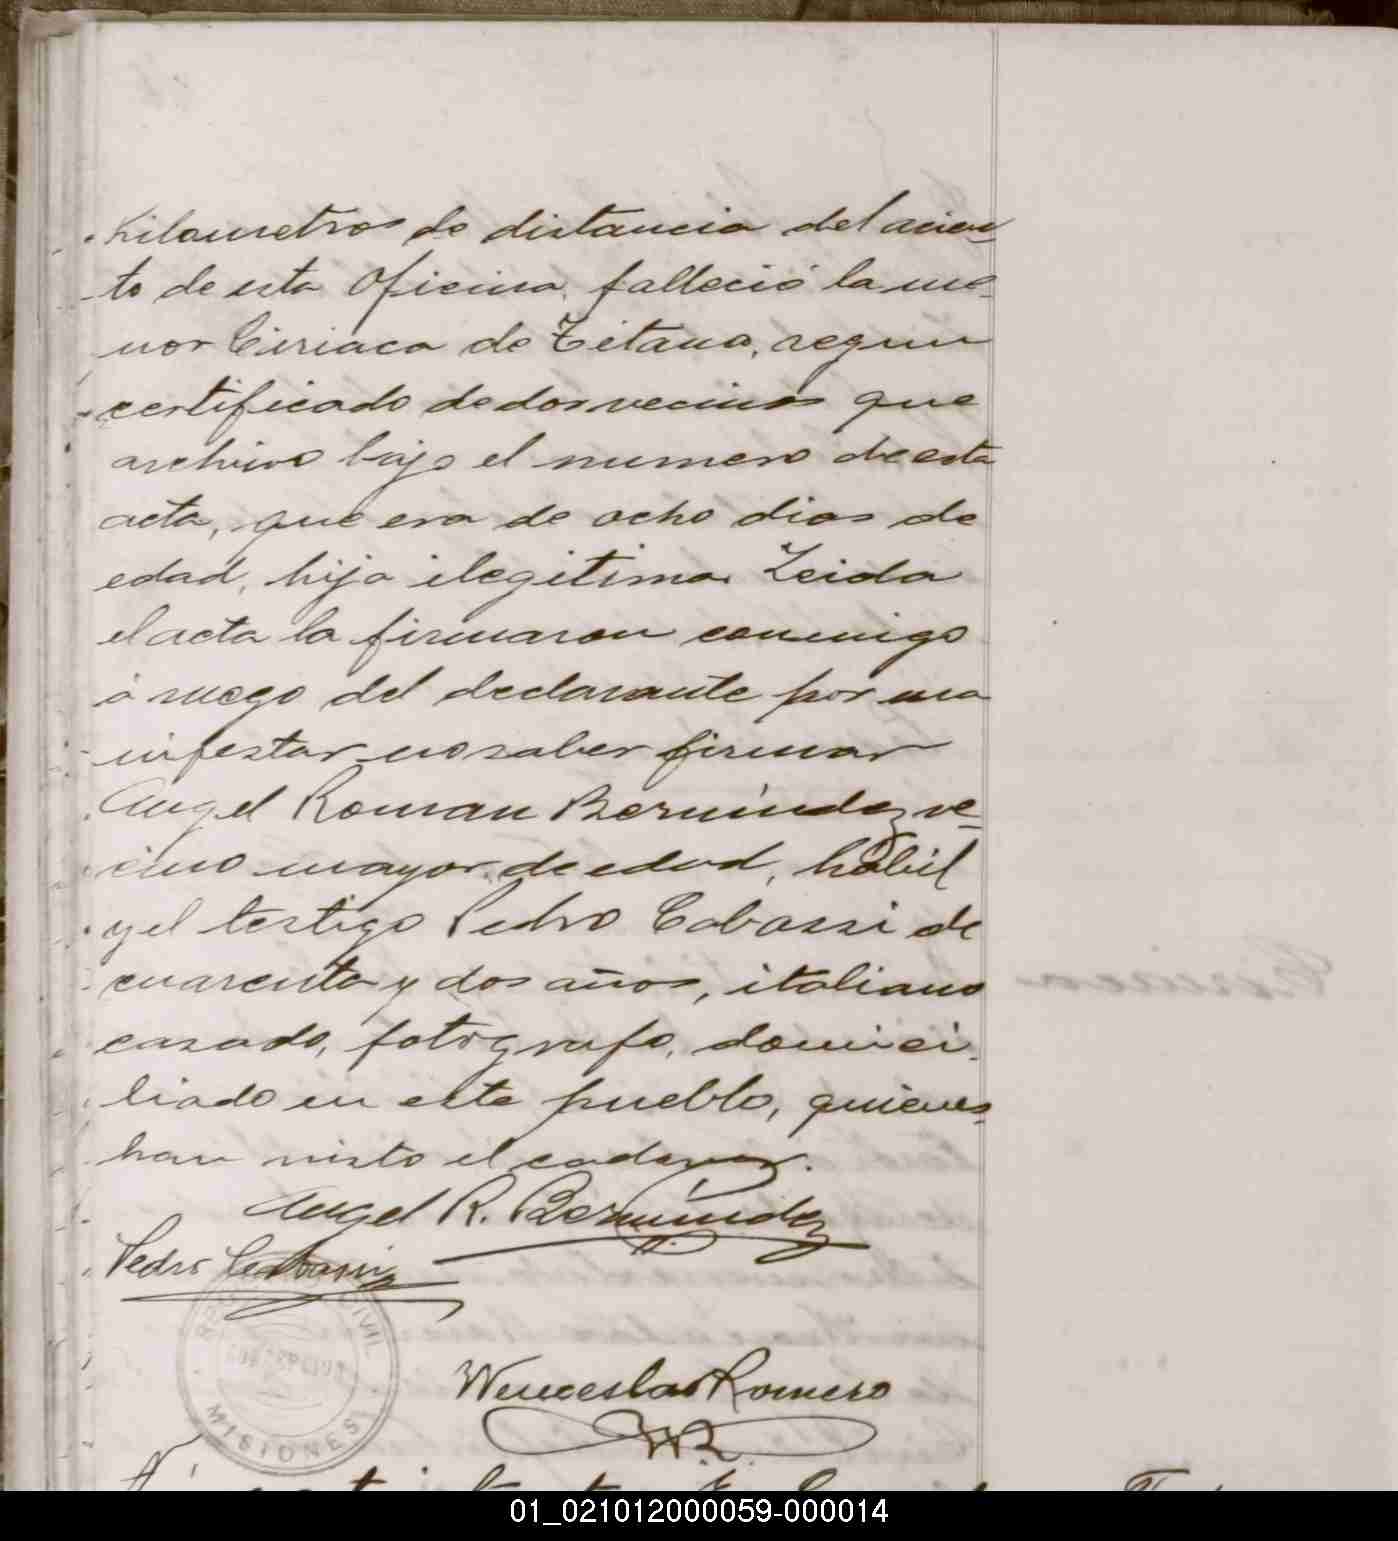 Kilometros de distancia del acien
to de esta Oficina, falleció la me-
nor Ciriaca de Titana, segun
certificado de dos vecinos que
archivo bajo el numero de esta
acta, que era de ocho dias de
edad, hija ilegitima. Leida
el acta la firmaron conmigo
á ruego del declarante por ma
nifestar no saber firmar
Angel Roman Bermúndez ve-
cino mayor de edad, habil
y el testigo Pedro Cabassi de
cuarenta y dos años, italiano
casado, fotografo, domici-
liado en este pueblo, quienes
han visto el cadaver.
Angel R. Bermúndez
Pedro Cabassi
CIVIL
MISIONES
Wenceslao Romero
WR.
01_021012000059-000014